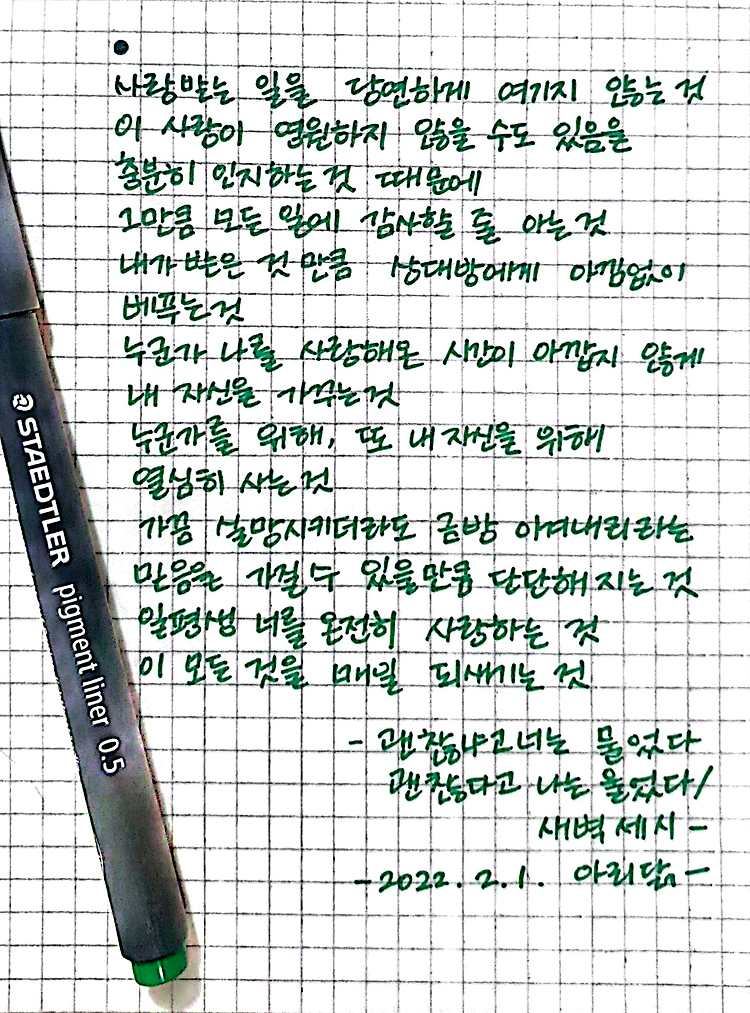 사랑받는 일을 당연하게 여기지 않는 것
이 사랑이 영원하지 않을 수도 있음을
충분히 인지하는 것 때문에
그만큼 모든 일에 감사할 줄 아는 것
내가 받은 것 만큼 상대방에게 아낌없이
베푸는 것
누군가 나를 사랑해온 시간이 아깝지 않게
내 자신을 가꾸는 것
누군가를 위해, 또 내 자신을 위해
열심히 사는 것
가끔 실망시키더라도 금방 이겨내리라는
믿음을 가질 수 있을만큼 단단해 지는 것
일평생 너를 온전히 사랑하는 것
이 모든 것을 매일 되새기는 것
- 괜찮냐고 너는 물었다
괜찮다고 나는 울었다 /
새벽 세시 -
- 2022. 2. 1. 아리닮 -
STAEDTLER pigment liner 0.5